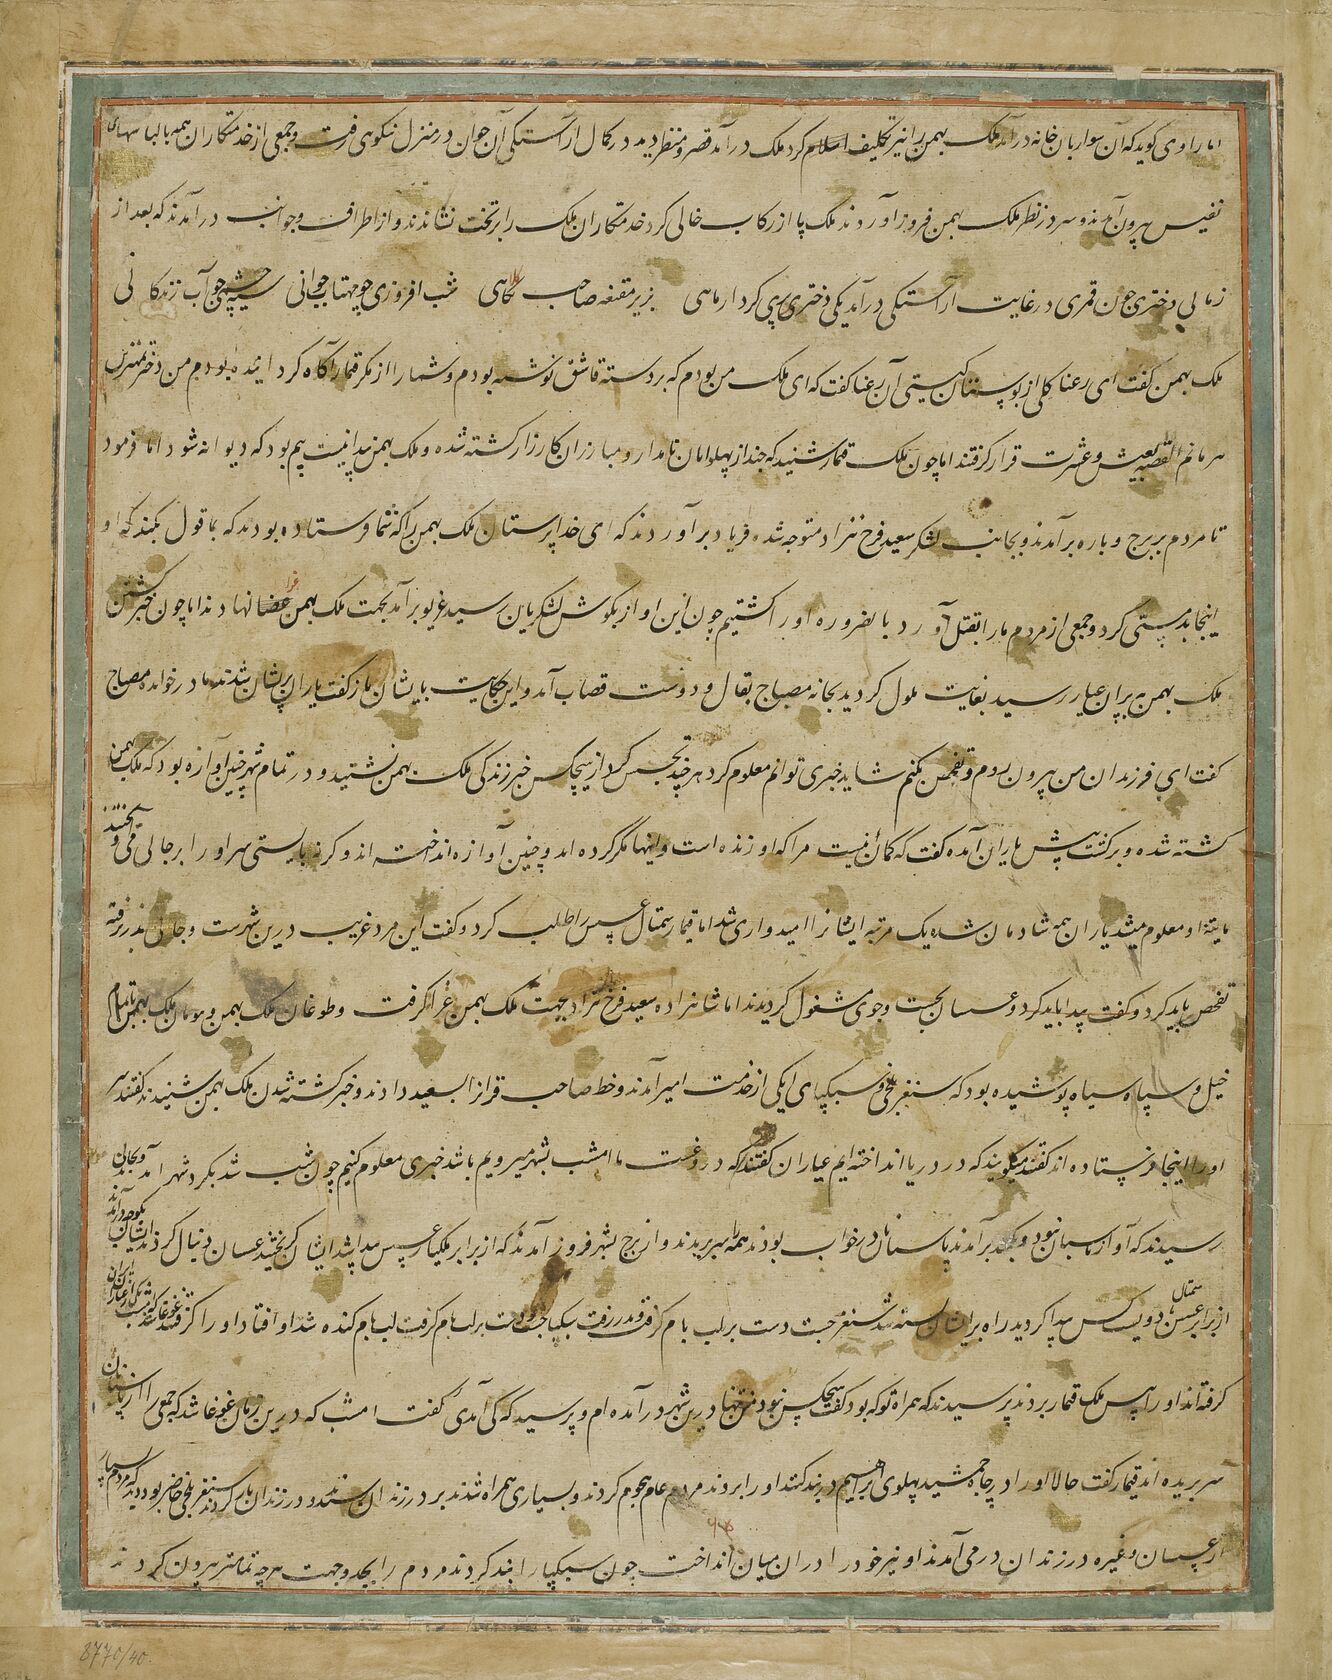 اما راوی گوید که آن سوار بان خانه درآمد ملک بهمن را نیز تکلیف اسلام کرد ملک درآمد قصر و منظر دید در کمال آراستگی آن جوان در منزل نیکوی رفت و جمعی از خدمتکاران همه با لباسهای
نفیس بیرون آمدند و سر در نظر ملک بهمن فرود آوردند ملک پا از رکاب خالی کرد خدمتکاران ملک را بر تخت نشاندند و از اطراف و جوانب درآمدند که بعد از
زمانی دختری چون قمری در غایت آراستگی درآمد یکی دختری پری کردار ماهی بزیر مقنعه صاحب کلاهی شب افروزی چو مهتاب جوانی سیه چشمی چو آب زندگانی
ملک بهمن گفت ای رعنا گلی از بوستان کیستی آن رعنا گفت که ای ملک من بودم که بر دسته قاشق نوشته بودم و شما را از مکر قیمار آگاه گردانیده بودم من دختر مهتر
هرمانم القصه بعیش و عشرت قرار گرفتند اما چون ملک قیمار شنید که چند از پهلوانان نامدار و مبارزان کارزار کشته شده و ملک بهمن پیدا نیست بیم بود که دیوانه شود اما فرمود
تا مردم بر برج و باره برآمدند و بجانب لشکر سعید فرخ نژاد متوجه شده فریاد برآوردند که ای خداپرستان ملک بهمن را که شما فرستاده بودند که بما قول بکند که او
اینجا بدمستی کرد و جمعی از مردم ما را بقتل آورد بالضروره او را کشتیم چون این آواز بگوش لشکریان رسید غریو برآمد بجهت ملک بهمن عزا نهادند اما چون خبر کشتن
ملک بهمن بپران عیار رسید بغایت ملول گردید بخانه مصباح بقال و دوست قصاب آمد و این حکایت بایشان باز گفت یاران پریشان شدند مادر خوانده مصباح
گفت ای فرزندان من بیرون روم و تفحص کنم شاید خبری توانم معلوم کرد هر چند تجسس کرد از هیچکس خبر زندگی ملک بهمن نشنید و در تمام شهر چنین آوازه بود که ملک بهمن
کشته شده و برگشت پیش یاران آمده گفت که گمان نیست مرا که او زنده است و اینها مگر کرده اند و چنین آوازه انداخته اند و گرنه بایستی سر او را بر جائی می آویختند
یا تنه او معلوم میشد یاران همه شادمان شده یک مرتبه ایشانرا امیدواری شد اما قیمار سمتال عسس را طلب کرد و گفت این مرد غریب درین شهرست و جائی نرفته
تفحص باید کرد و گفت پیدا باید کرد و عسسان بجست و جوی مشغول گردیدند اما شاهزاده سعید فرخ نژاد بجهت ملک بهمن عزا گرفت و طوغان ملک بهمن و مومان ملک بهمن با تمام
خیل و سپاه سیاه پوشیده بود که سنقر بلخی و سبکپای ایکی از خدمت امیر آمدند و خط صاحب قران السعید دادند و خبر کشته شدن ملک بهمن شنیدند گفتند سر
او را اینجا فرستاده اند گفتند میگویند که در دریا انداخته ایم عیاران گفتند که دروغست ما امشب بشهر میرویم باشد خبری معلوم کنیم چون شب شد بگرد شهر آمدند و بجائی
رسیدند که آواز پاسبان نبود و کمند برآمدند پاسبانان در خواب بودند همه را سر بریدند و از برج بشهر فرود آمدند که از برابر یکبار عسس پیدا شد ایشان گریختند عسسان دنبال کردند ایشان بکوچه درآمدند
از برابر عسس سمتال دو یست کس پیدا گردید راه بر ایشان بسته شد سنقر بجست دست بر لب بام گرفت و بدر رفت سبکپا بجست و دست بر لب بام گرفت لب بام کنده شد او افتاد او را گرفتند
گرفته اند او را پیش ملک قیمار بردند پرسیدند که همراه تو که بود گفت هیچکس نبود من تنها درین شهر درآمده ام و پرسید که کی آمدی گفت امشب که درین زمان غوغا شد که جمعی را از پاسبانان
سر بریده اند قیمار گفت حالا او را در چاه جمشید پهلوی ابراهیم در بند کنند او را بردند مردم عام هجوم کردند و بسیاری همراه شدند بر در زندان رسیدند و در زندان باز کردند سنقر بلخی حاضر بود دید که مردم بسیار
از عسسان و غیره در زندان در می آمدند او نیز خود را در آن میان انداخت چون سبکپا را بند کردند مردم را بجد و جهت هر چه تمامتر بیرون کردند
8770/40.